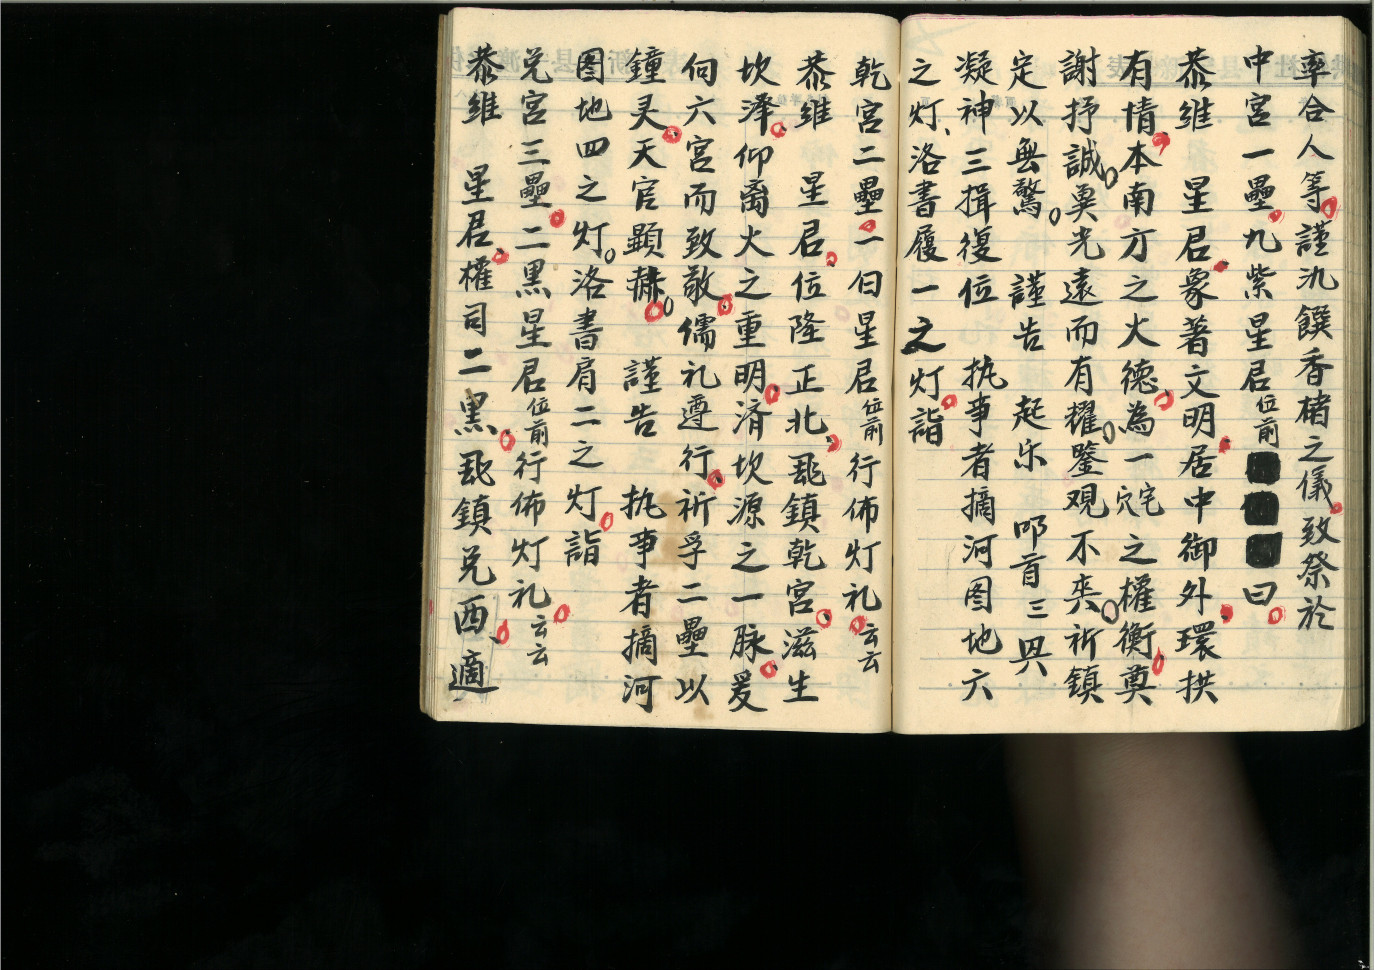 率合人等謹氿饌香楮之儀致祭於
中宮一壘九紫星君位前曰
恭維　星君象著文明居中御外環拱
有情本南方之火德為一宅之權衡奠
謝抒誠奠光遠而有耀鑒观不爽祈鎮
定以無驚　謹告　起乐　叩首三　興
凝神三揖復位　执事者摘河图地六
之灯、洛書履一之灯詣
乾宮二壘一白星君位前行佈灯礼云云
恭維　星君位隆正北、鎮乾宮滋生
坎泽仰离火之重明済坎源之一脉爰
向六宮而致敬儒礼遵行祈孚二壘以
鐘灵天官顕赫　謹告　执事者摘河
图地四之灯洛書肩二之灯詣
兑宮三壘二黑星君位前行佈灯礼云云
恭維　星君權司二黑、鎮兑西適